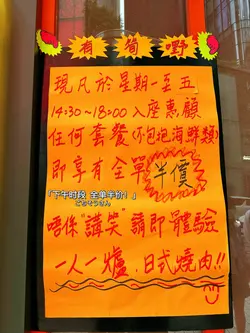 有筍嘢
現凡於星期一至五
14:30~18:00入座惠顧
任何套餐(不包括海鮮類)
即享有全單半價
「下午時段 全單半价！」
ごちそうさん
唔係"講笑"請即體驗
一人一爐，日式燒肉!!